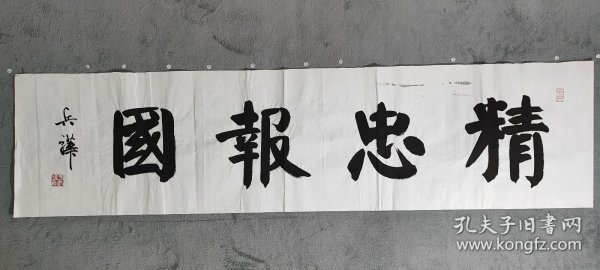 精忠報國
孔夫子旧书网
www.kongfz.com